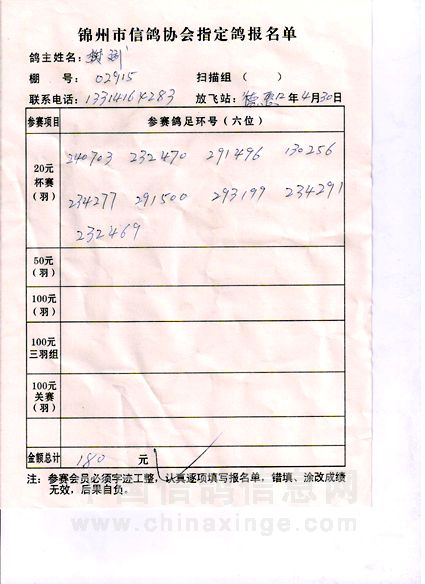 锦州市信鸽协会指定鸽报名单
鸽主姓名:
棚 号: 02915 扫描组 ( )
联系电话: 13314164283 放飞站: 年4月30日
参赛项目 参赛鸽足环号(六位)
20元 杯赛 (羽)
240703 232470 291496 130256
234277 291500 293199 234291
232469
50元 (羽)
100元 (羽)
100元 三羽组
100元 关赛 (羽)
金额总计 180 元
注: 参赛会员必须字迹工整,认真逐项填写报名单,错填、涂改成绩
无效,后果自负。
中国信鸽信息网
www.chinaxinge.com